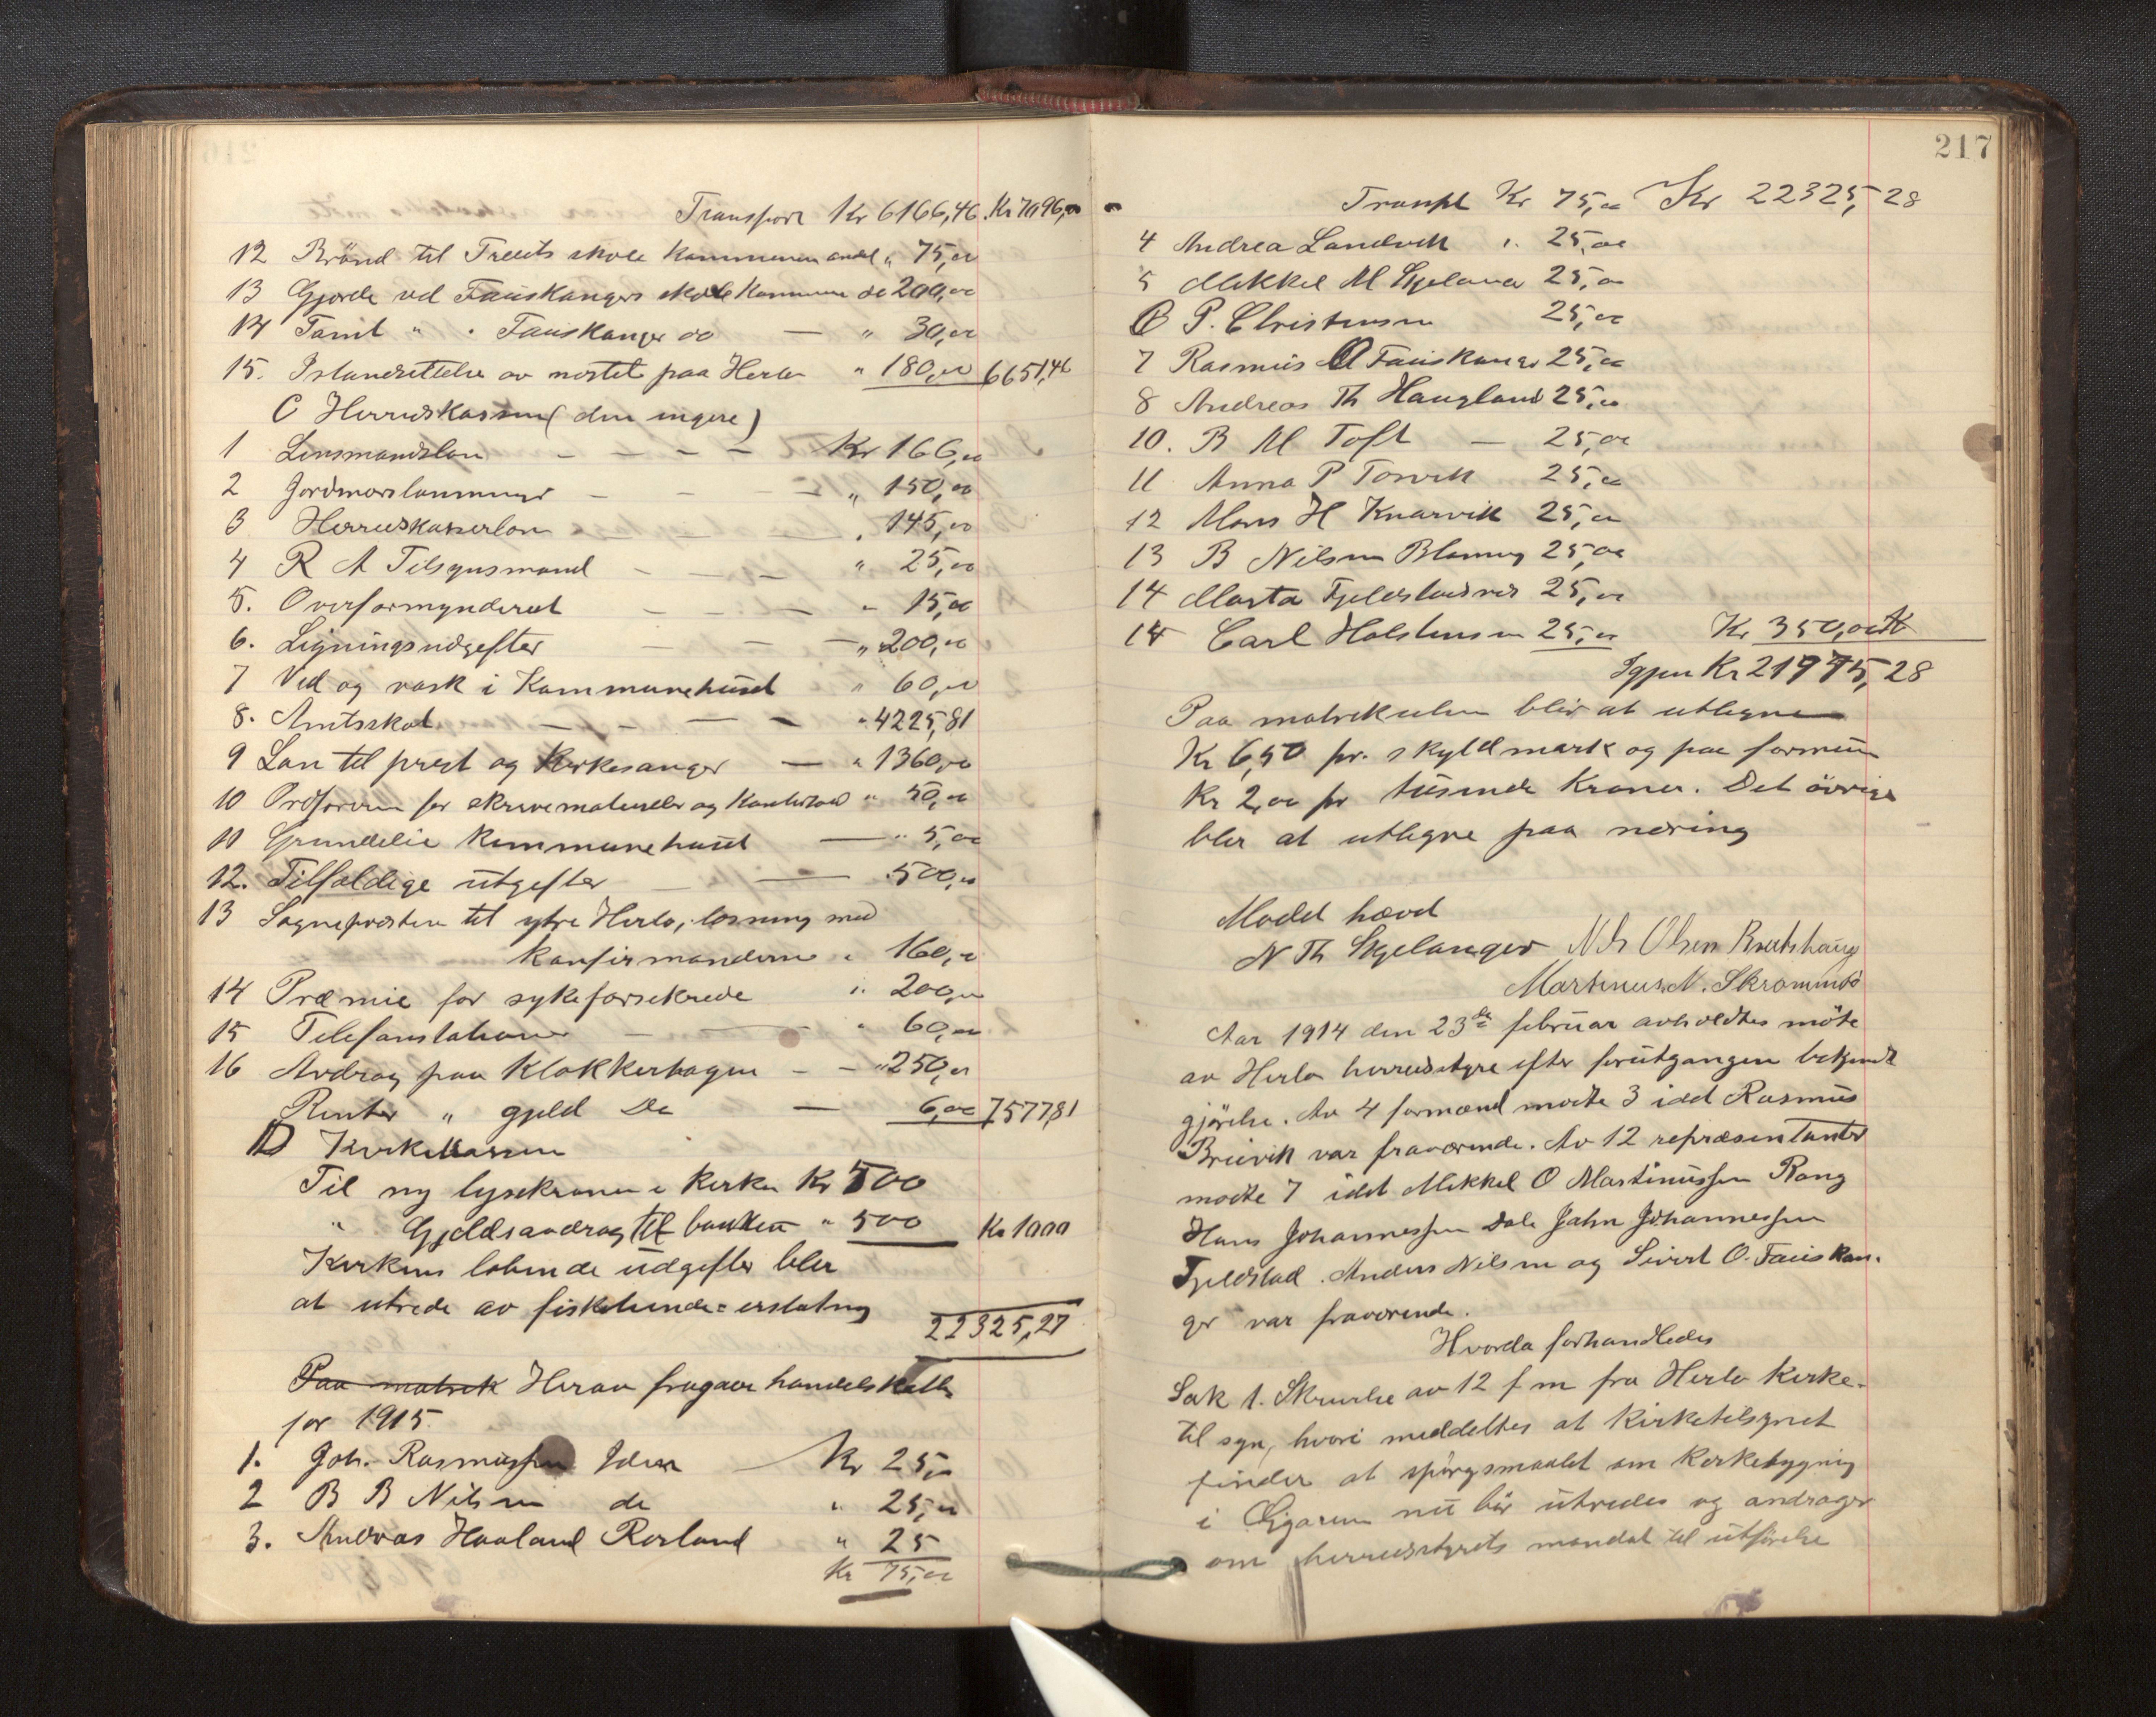 Transport Kr 6166,46 Kr 7096,00
12 Brönd til Treets skole Kommunens andel " 75,00
13 Gjerde ved Fauskangers skole Kommunen do 200,00
14 Tomt " " Fauskanger do — " 30,00
15. Istandsettelse av nostet paa Herlø " 180,00 6651,46
C Herredskassen (den ingere)
1 Lensmandsløn - - - - Kr 166,00
2 Jordmorslønninger - - - " 150,00
3 Herredskasserløn - - - " 145,00
4 R A Tilsynsmand - - - " 25,00
5. Overformynderiet - - - " 15,00
6. Ligningsudgifter - - - " 200,00
7 Ved og vask i Kommunehuset " 60,00
8. Amtsskat - - - - " 4225,81
9 Løn til prest og kirkesanger — " 1360,00
10 Ordføreren for skrivematerialer og Kontorhold " 50,00
11 Grundleie kommunehuset — " 5,00
12. Tilfældige utgifter — — 500,00
13 Sogneprosten til ytre Herlø, løsning med
konfirmanderne " 160,00
14 Præmie for sykeforsikrede " 200,00
15 Telefonstationer - — " 60,00
16 Avdrag paa Klokkerhagen - - " 250,00
Renter " gjeld Do — 6,00 7577,81
D Kirkekassen
Til ny lysekrone i kirken Kr 500
" Gjeldsavdrag til banken " 500 Kr 1000
Kirkens løbende udgifter blir
at utrede av fisketiende-erstatning
22325,27
Paa matrik Herav fragaar handelsskatter
for 1915.
1. Joh. Rasmussen Idsø Kr 25,00
2 B B Nilsen do " 25,00
3. Andreas Haaland Rosland " 25
Kr 75,00
217
Transpt Kr 75,00 Kr 22325,28
4 Andrea Landvik " 25,00
5 Mikkel M Skjelanger 25,00
6 P. Christensen 25,00
7 Rasmus A Fauskanger 25,00
8 Andreas Th Haugland 25,00
10. B M Toft — 25,00
11 Anna P Torvik 25,00
12 Mons H Knarvik 25,00
13 B Nilsen Blomøy 25,00
14 Marta Fjeldstadvik 25,00
14 Carl Halstensen 25,00 Kr 350,00
Igjen Kr 21975,28
Paa matrikulen blir at utligne
Kr 6,50 pr. skyldmark og paa formue
Kr 2,00 pr tusende Kroner. Det övrige
blir at utligne paa næring
Mødet hævd
N Th Skjelanger Nils Olsen Breidshaug
Martinus N. Skramsø
Aar 1914 den 23de februar avholdtes möte
av Herlø herredsstyre efter forutgangen bekjendt
gjörelse. Av 4 formænd mødte 3 idet Rasmus
Breivik var fraværende. Av 12 repræsentanter
mødte 7 idet Mikkel O Martinussen Rong
Hans Johannessen Dale John Johannessen
Fjeldstad. Anders Nilsen og Sivert O. Fauskan-
ger var fraværende.
Hvorda forhandledes
Sak 1. Skrivelse av 12 f m fra Herlø Kirke-
tilsyn, hvori meddeltes at Kirketilsynet
finder at spörgsmaalet om kirkebygning
i Øygaren nu bör utredes og andrager
om herredsstyrets mandat til utförelse